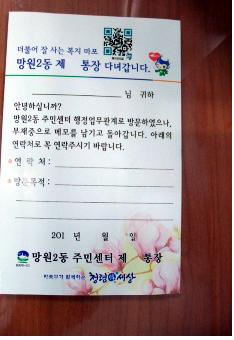 더불어 잘 사는 복지 마포
망원2동 제 통장 다녀갑니다.
님 귀하
안녕하십니까?
망원2동 주민센터 행정업무관계로 방문하였으나,
부재중으로 메모를 남기고 돌아갑니다. 아래의
연락처로 꼭 연락주시기 바랍니다.
연 락 처 :
방문목적 :
201 년 월 일
망원2동 주민센터 제 통장
마포구가 함께하는 청렴 세상